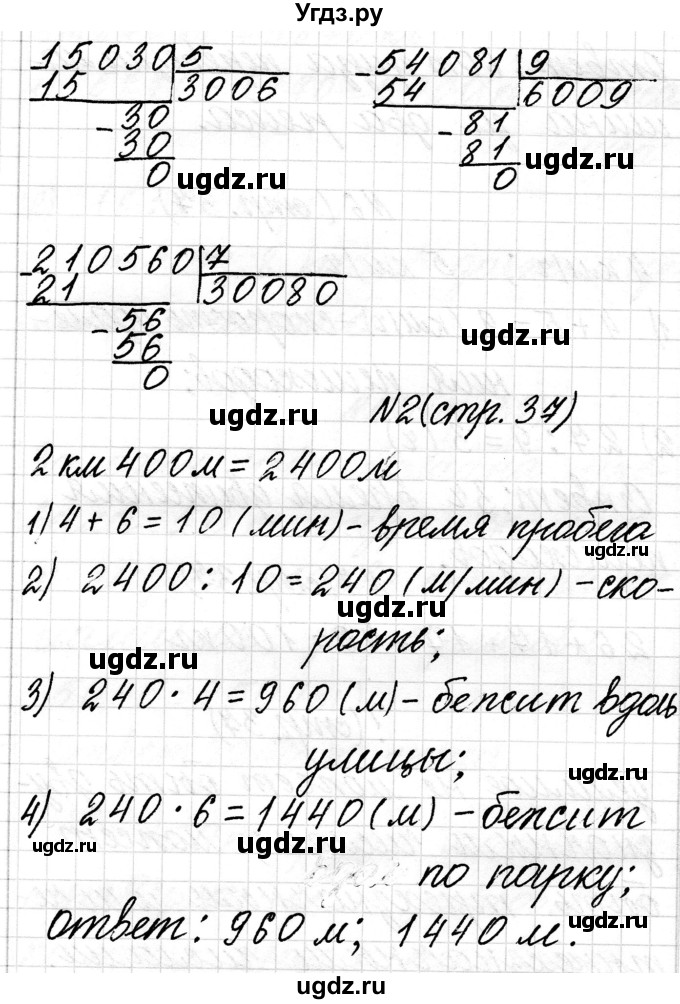 Угдз.ру
15030 | 5
15 3006
- 30
30
0
ugdz.ru
- 54081 | 9
54 6009
- 81
81
0
ugdz.ru
- 210560 | 7
21 30080
- 56
56
0
ugdz.ru
ugdz.ru
N2(стр. 37)
2 км 400м = 2400м
1) 4 + 6 = 10 (мин) - время пробега
ugdz.ru
2) 2400 : 10 = 240 (м/мин) - ско-
ugdz.ru
рость;
ugdz.ru
3) 240 · 4 = 960 (м) - бежит вдоль
улицы;
ugdz.ru
4) 240 · 6 = 1440 (м) - бежит
ugdz.ru
ugdz.ru
по парку;
ответ: 960 м; 1440 м.
ugdz.ru
ugdz.ru